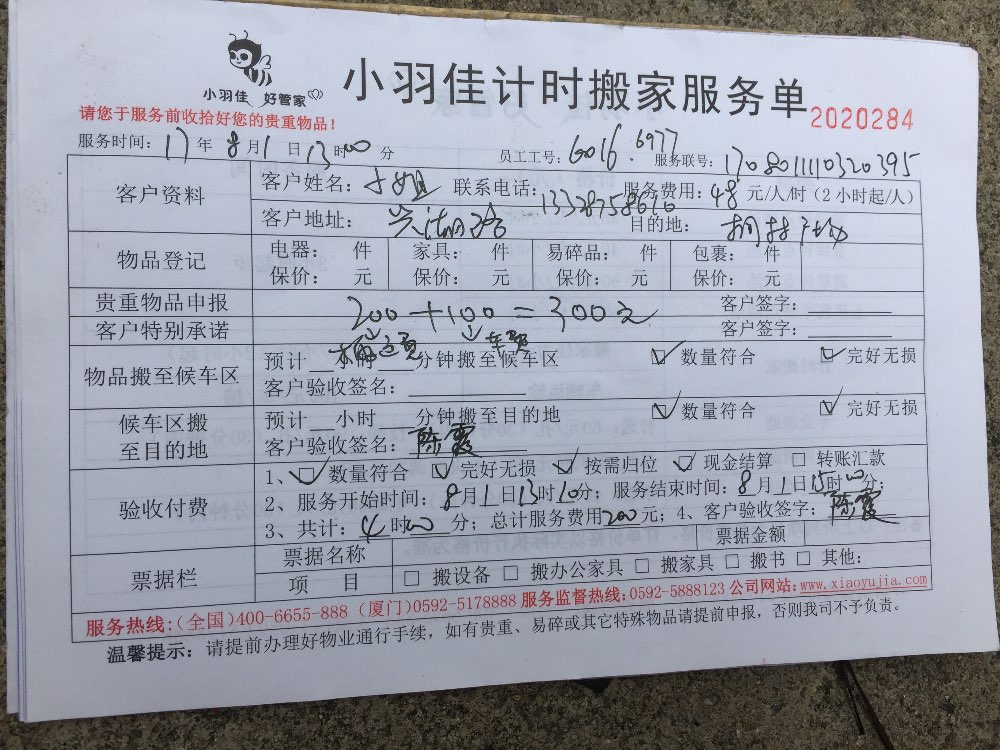 小羽佳 好管家
小羽佳计时搬家服务单
2020284
请您于服务前收拾好您的贵重物品！
服务时间：17年8月1日13时00分 员工工号：6016.6977 服务联号：1708011110320395
客户资料
客户姓名： 联系电话：13328758610 服务费用：48元/人/时（2小时起/人）
客户地址：兴湖路 目的地：
物品登记
电器： 件 家具： 件 易碎品： 件 包裹： 件
保价： 元 保价： 元 保价： 元 保价： 元
贵重物品申报 客户签字：
200+100=300元
客户特别承诺 客户签字：
车费
物品搬至候车区
预计 分钟搬至候车区 数量符合 完好无损
客户验收签名：
候车区搬至目的地
预计 小时 分钟搬至目的地 数量符合 完好无损
客户验收签名：陈霞
验收付费
1、数量符合 完好无损 按需归位 现金结算 转账汇款
2、服务开始时间：8月1日13时10分；服务结束时间：8月1日15时00分；
3、共计：4时00分；总计服务费用200元；4、客户验收签字：陈霞
票据栏
票据名称 票据金额
项 目 搬设备 搬办公家具 搬家具 搬书 其他：
服务热线：（全国）400-6655-888（厦门）0592-5178888 服务监督热线：0592-5888123 公司网站：www.xiaoyujia.com
温馨提示：请提前办理好物业通行手续，如有贵重、易碎或其它特殊物品请提前申报，否则我司不予负责。